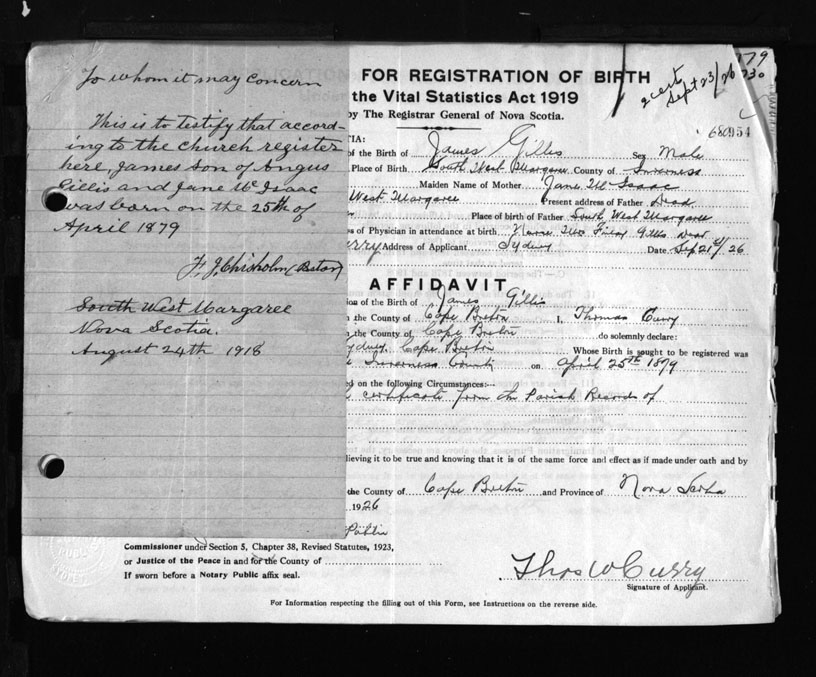 To whom it may concern
This is to testify that accord-
ing to the church register
here, James son of Angus
Gillis and Jane McIsaac
was born on the 25th of
April 1879
F. J. Chisholm (Pastor)
South West Margaree
Nova Scotia.
August 24th 1918
FOR REGISTRATION OF BIRTH
the Vital Statistics Act 1919
by The Registrar General of Nova Scotia.
2 cert
Sept 23/26
79
730
680954
TIA:
of the Birth of James Gillis Sex Male
Place of Birth South West Margaree County of Inverness
Maiden Name of Mother Jane McIsaac
West Margaree Present address of Father Dead
Place of birth of Father South West Margaree
s of Physician in attendance at birth Nurse Mrs Gillis Dead
urry Address of Applicant Sydney Date Sep 21st/26
AFFIDAVIT
ion of the Birth of James Gillis
n the County of Cape Breton I, Thomas Curry
n the County of Cape Breton do solemnly declare:
ydney, Cape Breton Whose Birth is sought to be registered was
Inverness County on April 25th 1879
d on the following Circumstances:--
certificate from the Parish Records of
lieving it to be true and knowing that it is of the same force and effect as if made under oath and by
the County of Cape Breton and Province of Nova Scotia
1926
Public
Commissioner under Section 5, Chapter 38, Revised Statutes, 1923,
or Justice of the Peace in and for the County of
If sworn before a Notary Public affix seal.
Thos W Curry
Signature of Applicant.
For Information respecting the filling out of this Form, see Instructions on the reverse side.